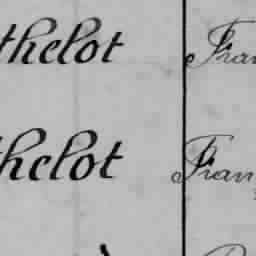 thelot Fran
thelot Fran